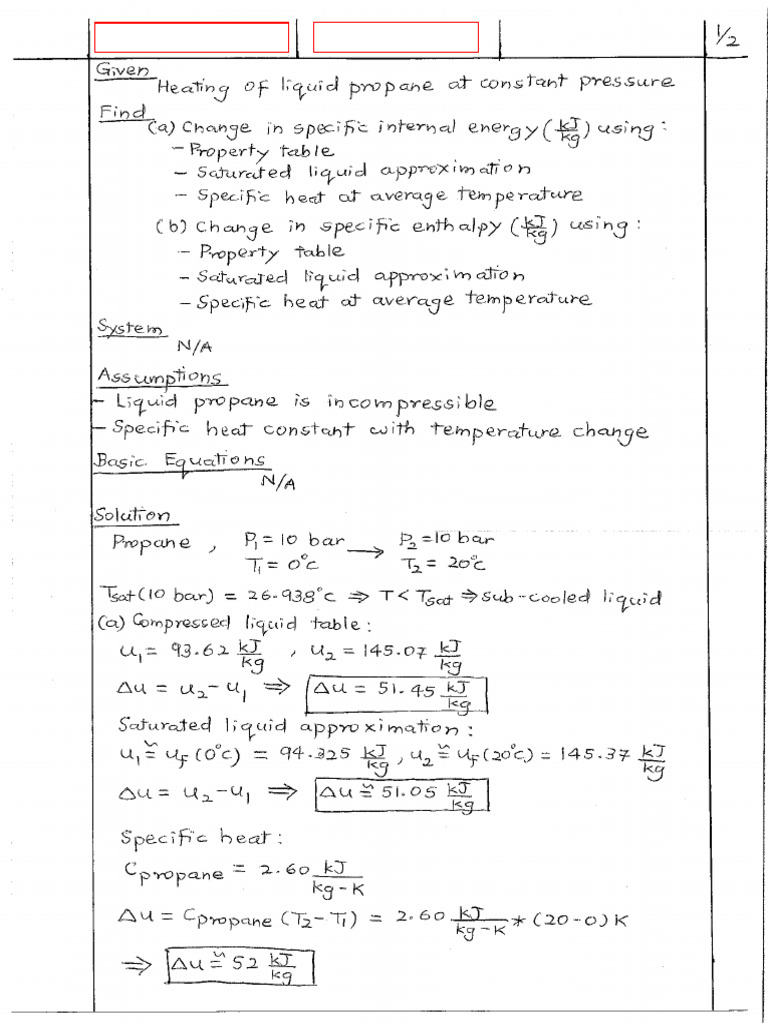 1/2
Given
Heating of liquid propane at constant pressure
Find
(a) Change in specific internal energy (kJ/kg) using:
- Property table
- Saturated liquid approximation
- Specific heat at average temperature
(b) Change in specific enthalpy (kJ/kg) using:
- Property table
- Saturated liquid approximation
- Specific heat at average temperature
System
N/A
Assumptions
- Liquid propane is incompressible
- Specific heat constant with temperature change
Basic Equations
N/A
Solution
Propane, P₁ = 10 bar → P₂ = 10 bar
T₁ = 0°c T₂ = 20°c
Tsat (10 bar) = 26.938°c ⇒ T < Tsat ⇒ sub-cooled liquid
(a) Compressed liquid table:
u₁ = 93.62 kJ/kg , u₂ = 145.07 kJ/kg
Δu = u₂ - u₁ ⇒ Δu = 51.45 kJ/kg
Saturated liquid approximation:
u₁ ≅ uf (0°c) = 94.325 kJ/kg , u₂ ≅ uf (20°c) = 145.37 kJ/kg
Δu = u₂ - u₁ ⇒ Δu ≅ 51.05 kJ/kg
Specific heat:
Cpropane = 2.60 kJ/kg-K
Δu = Cpropane (T₂ - T₁) = 2.60 kJ/kg-K * (20-0) K
⇒ Δu ≅ 52 kJ/kg